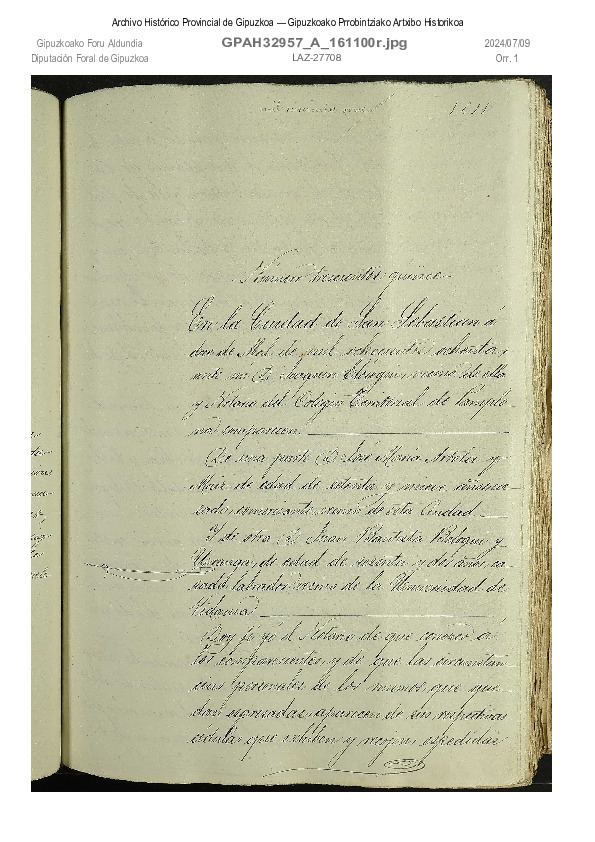 Archivo Histórico Provincial de Gipuzkoa — Gipuzkoako Prrobintziako Artxibo Historikoa
Gipuzkoako Foru Aldundia
Diputación Foral de Gipuzkoa
GPAH32957_A_161100r.jpg
LAZ-27708
2024/07/09
Orr. 1
Número trescientos quince
En la Ciudad de San Sebastian á
dos de Mayo de mil ochocientos ochenta y
ante mi D. Joaquin Elósegui, vecino de ella
y Notario del Colegio Territorial de Pamplo-
na, comparecen.
De una parte D. José Maria
de edad de setenta y nueve años, ca-
sado, comerciante, vecino de esta Ciudad.
Y de otra D. Juan Bautista y
de edad de sesenta y dos años, ca-
sado, labrador, vecino de la Universidad de
Vidania.
Doy fé yo el Notario de que conozco á
los comparecientes y de que las circunstan-
cias personales de los mismos que que-
dan espresadas, aparecen de sus respectivas
cédulas que exhiben y recojen, espedidas